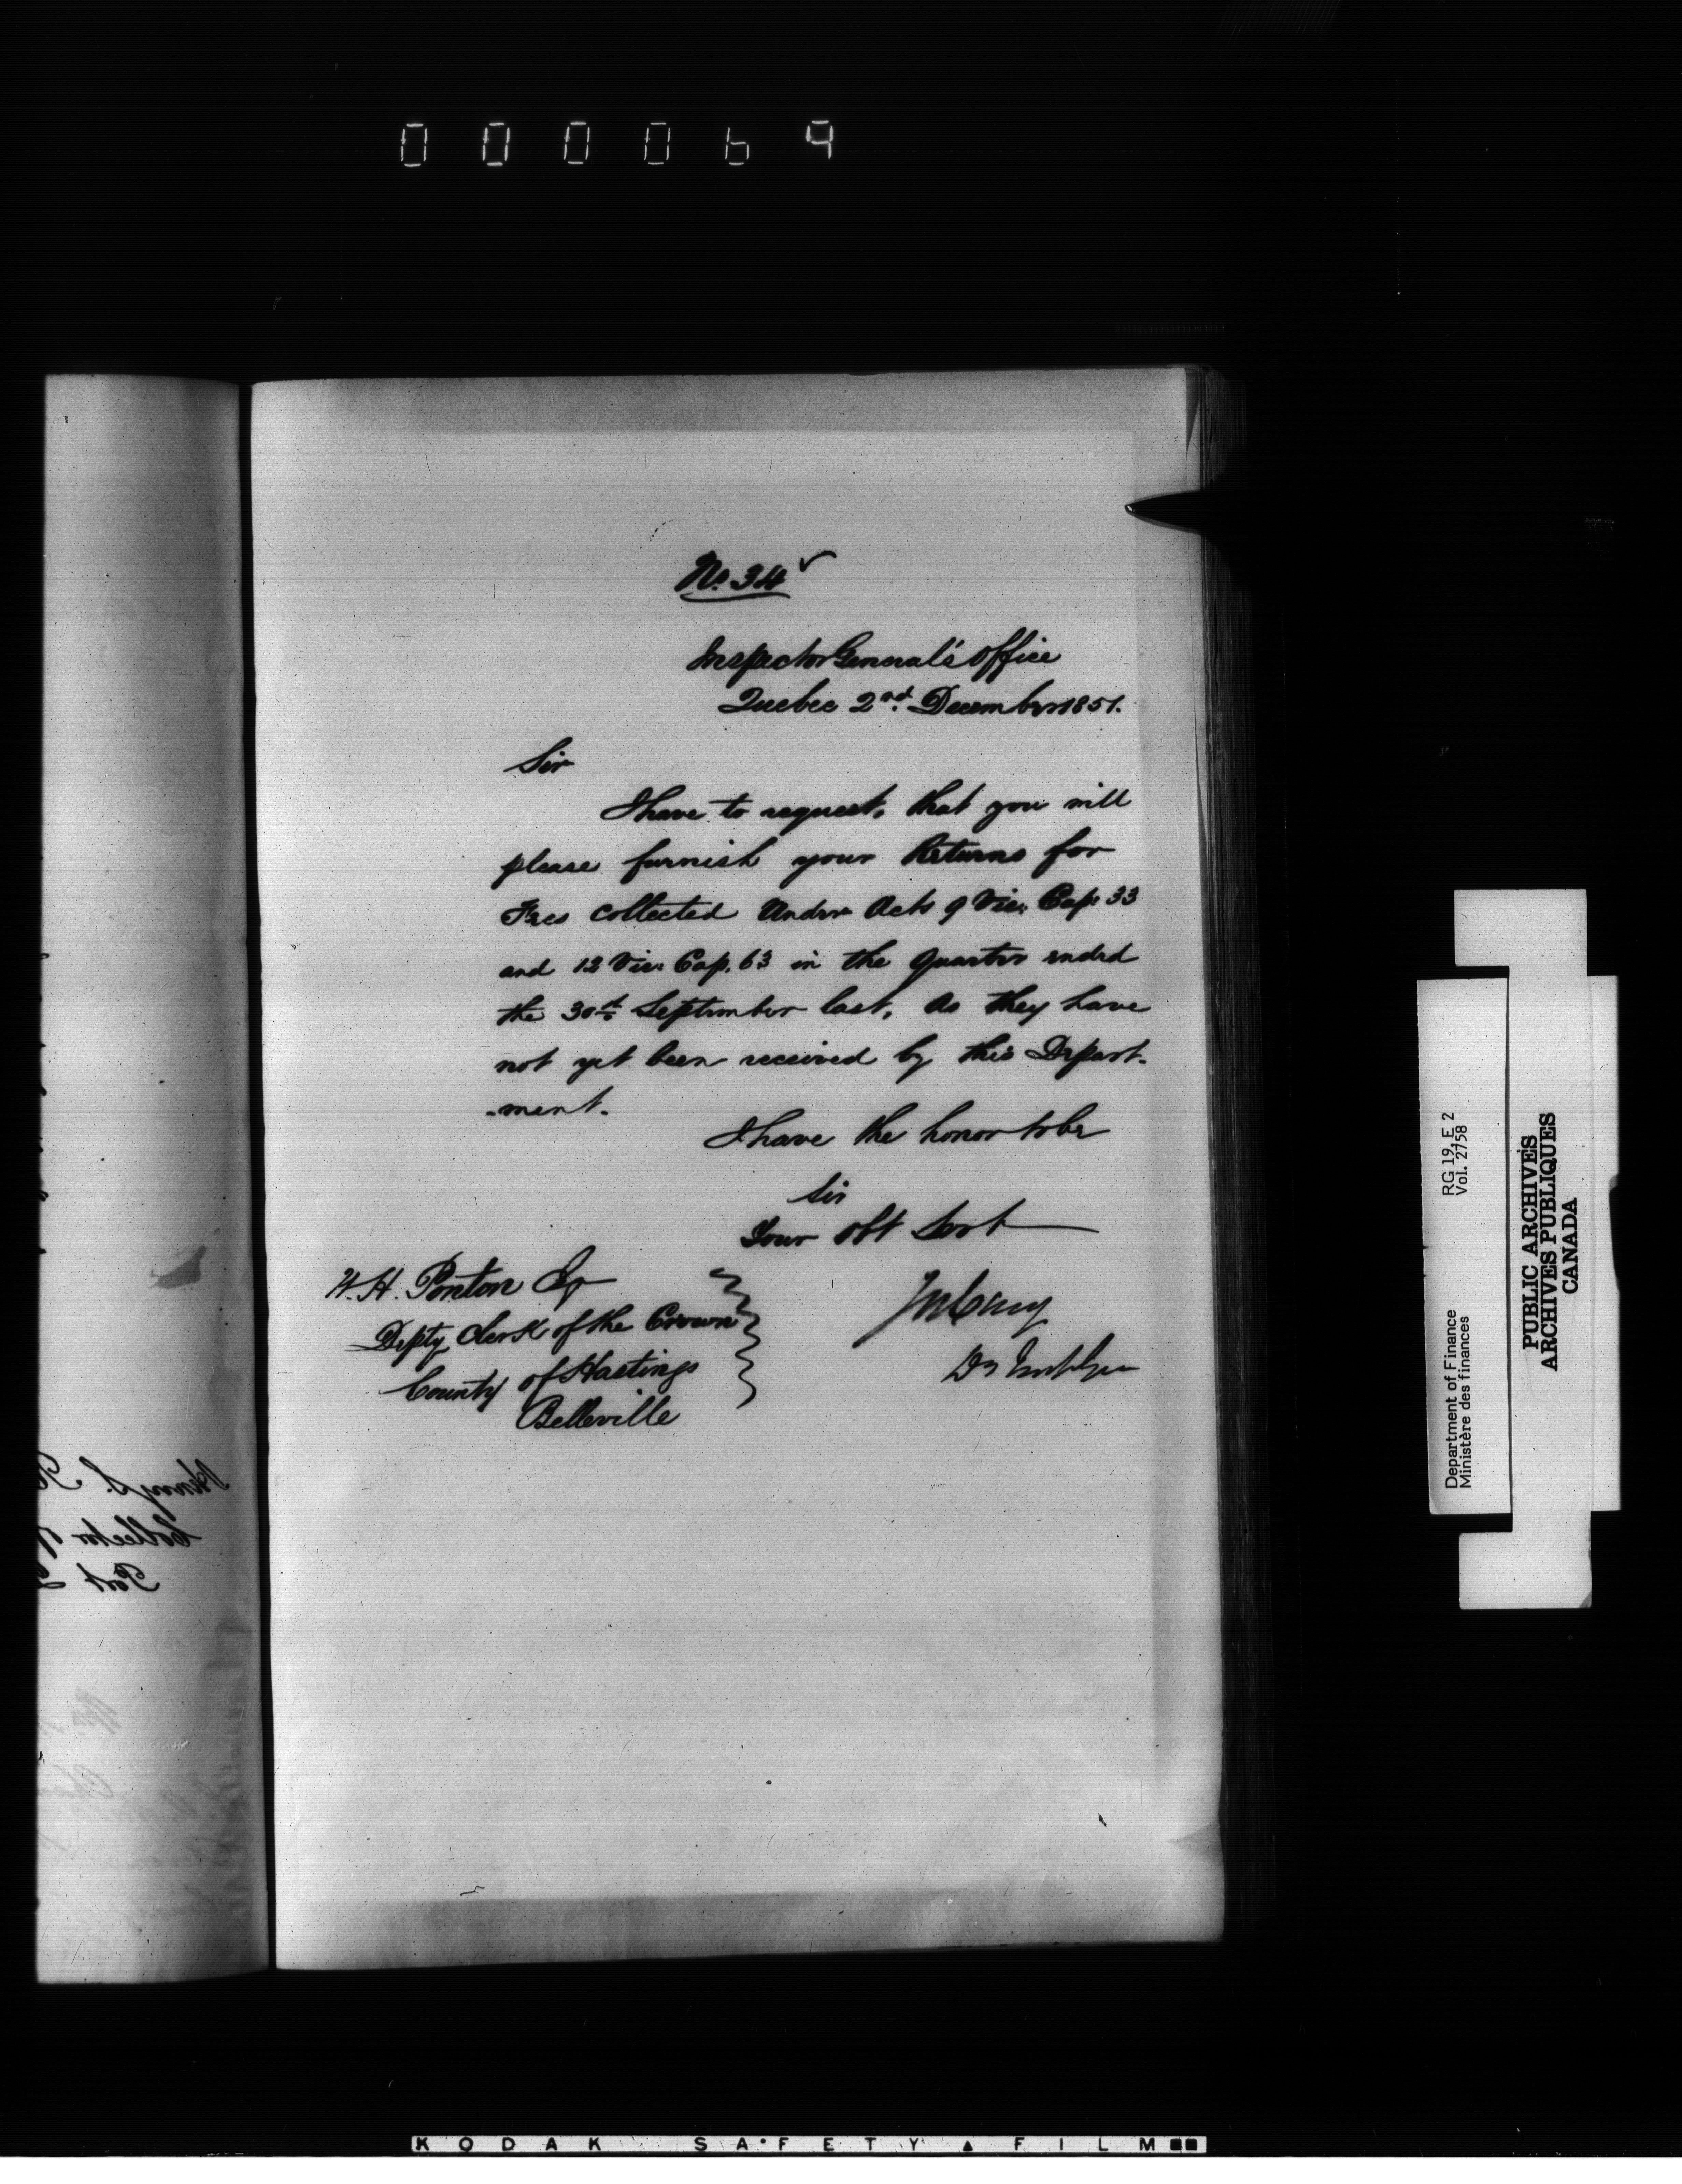 000069
No. 34
Inspector General's Office
Quebec 2nd. December 1851.
Sir
I have to request, that you will
please furnish your Returns for
Fees collected Under Acts 9 Vic: Cap: 33
and 12 Vic: Cap. 63 in the Quarter ended
the 30th September last, as they have
not yet been received by this Depart-
-ment.
I have the honor to be
Sir
Your Obt Servt
W. H. Ponton Esq
Depty Clerk of the Crown
County of Hastings
Belleville
Jos Cary
Dy
Henry S.
Collector
Port
RG 19, E 2
Vol. 2758
Department of Finance
Ministère des finances
PUBLIC ARCHIVES
ARCHIVES PUBLIQUES
CANADA
KODAK SAFETY FILM